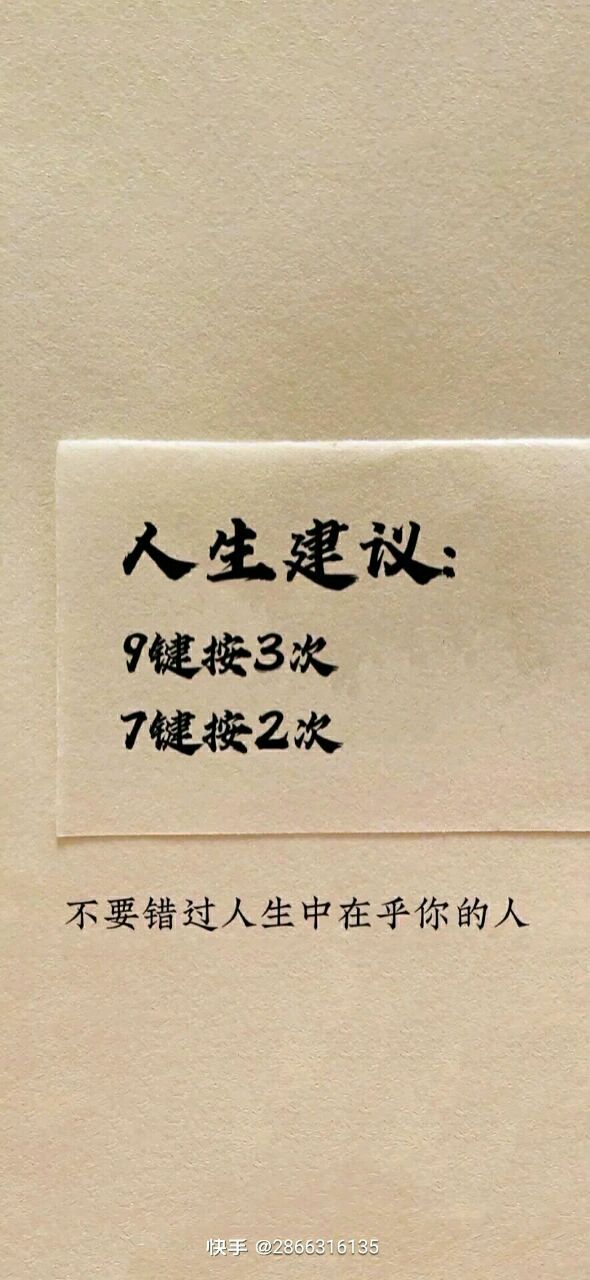 人生建议:
9键按3次
7键按2次
不要错过人生中在乎你的人
快手 @2866316135